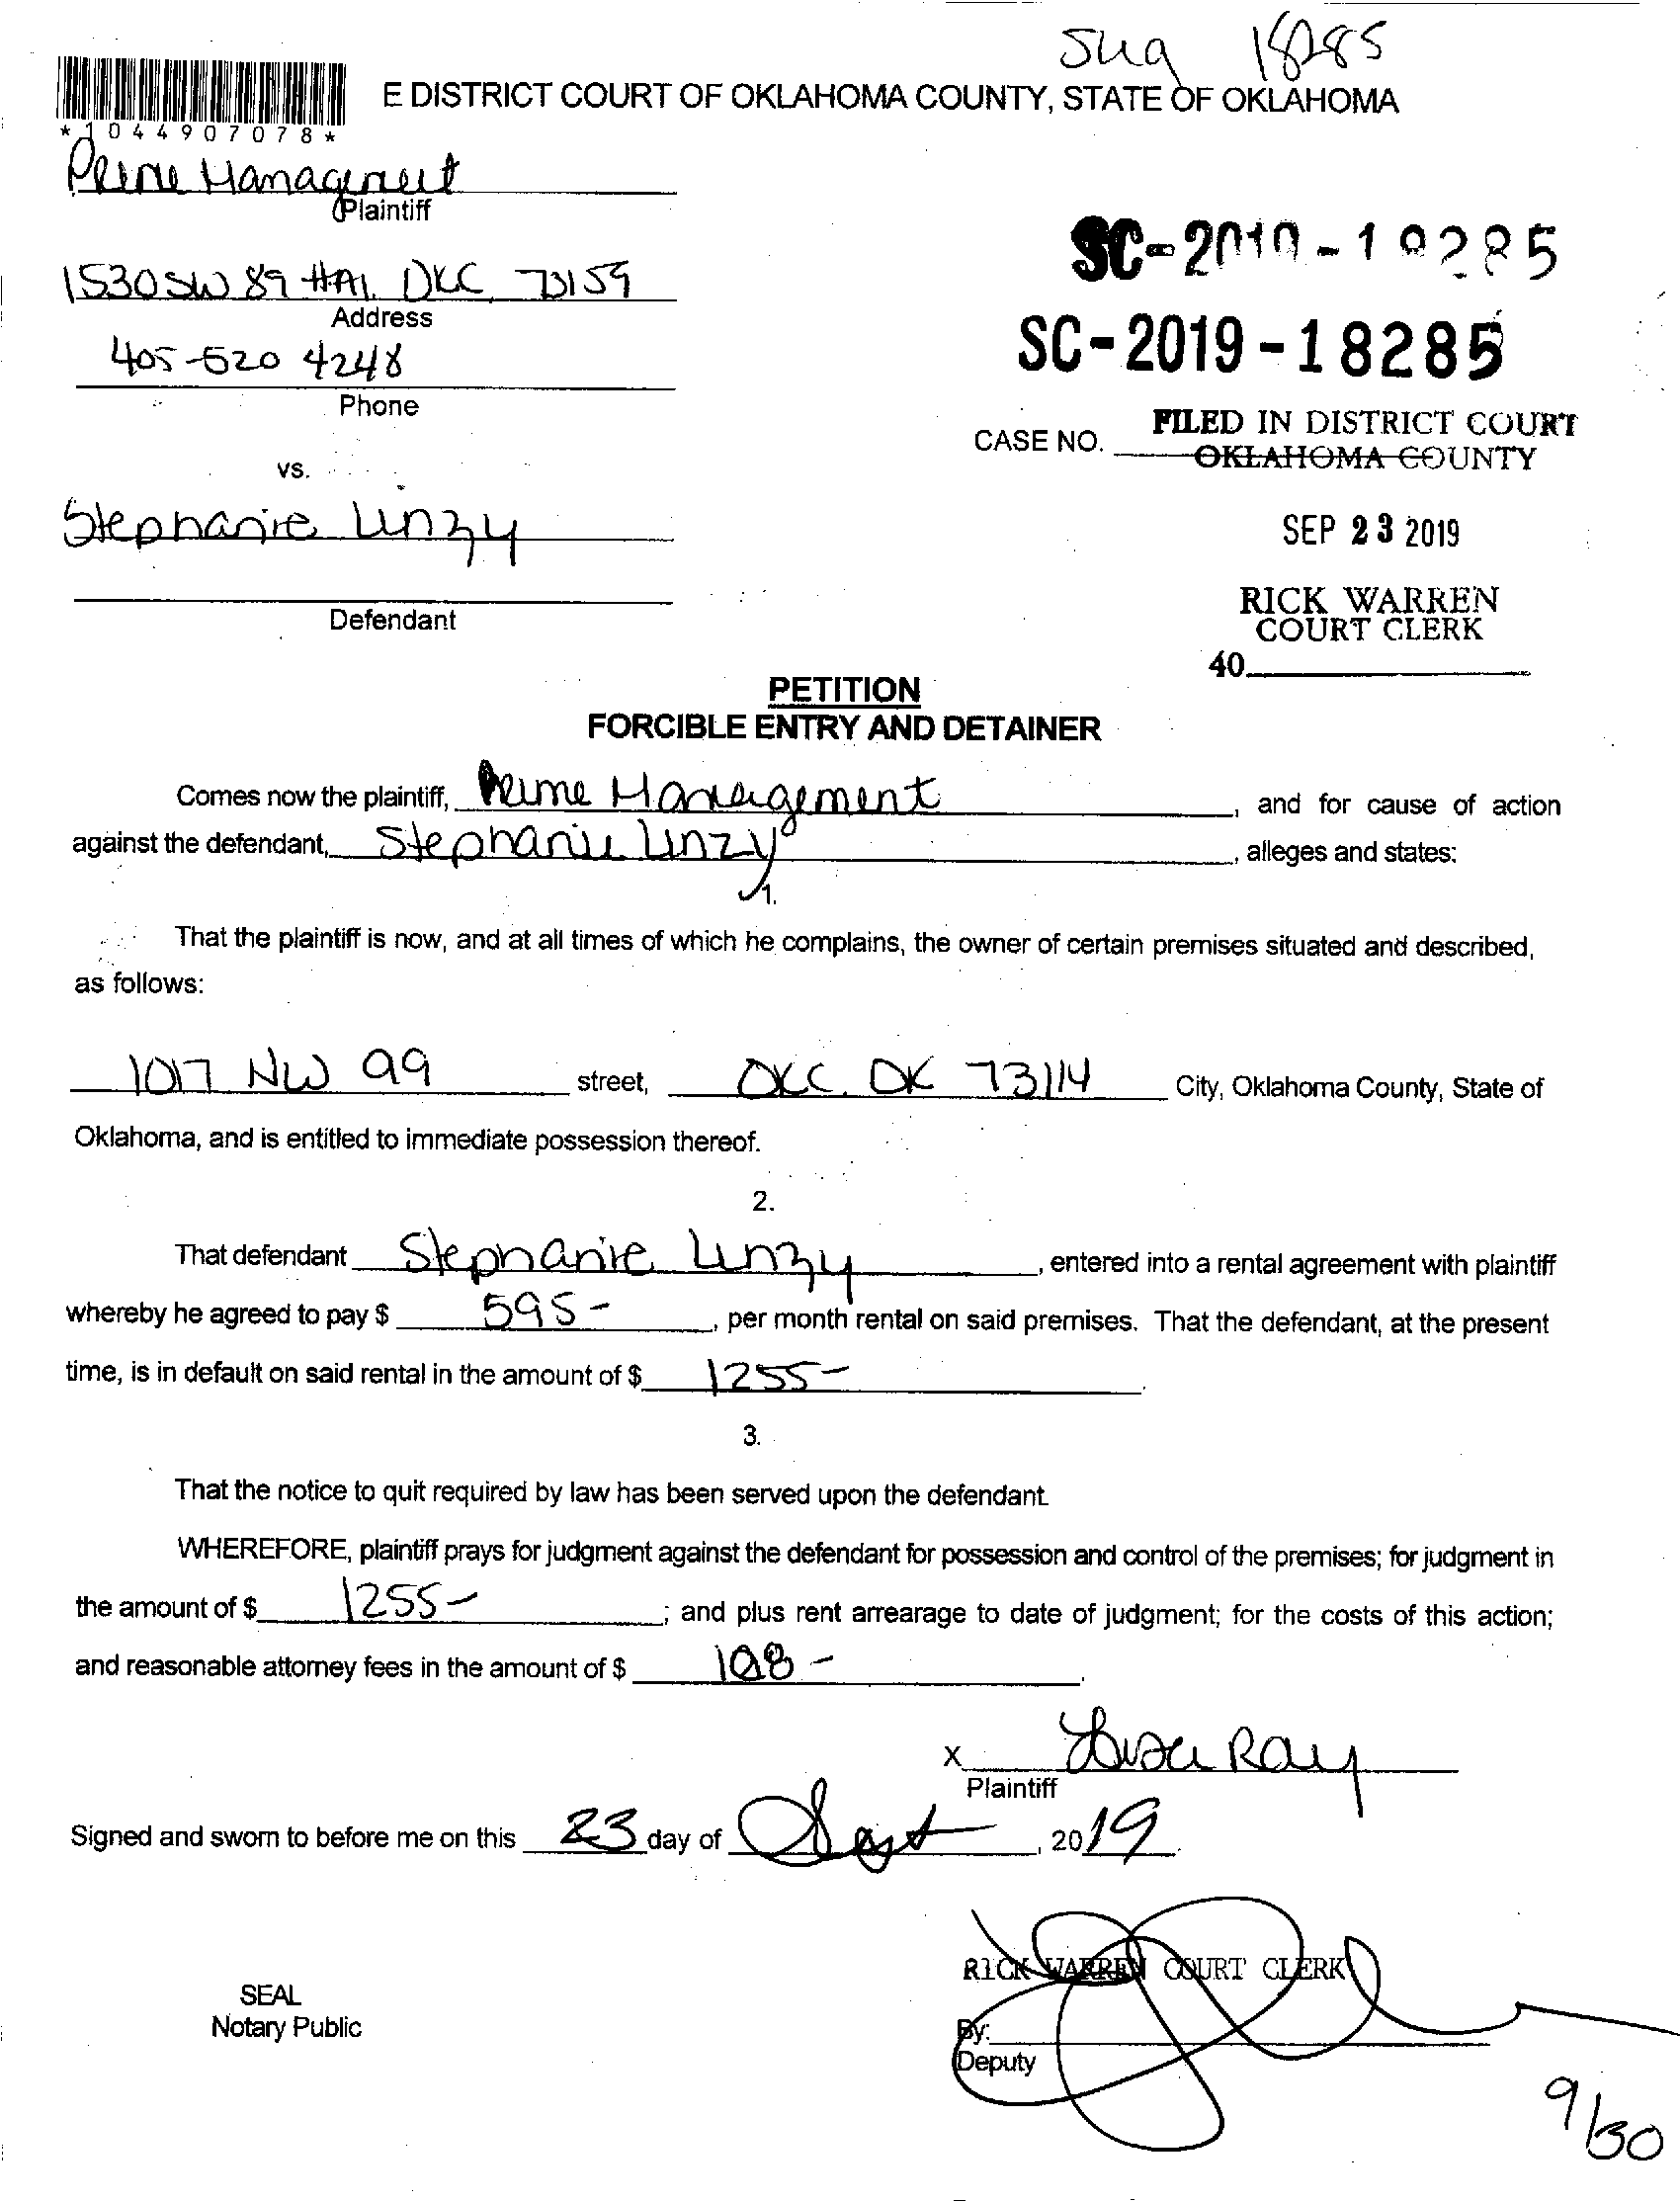 18285
E DISTRICT COURT OF OKLAHOMA COUNTY, STATE OF OKLAHOMA
*1044907078*
Prime Management
Plaintiff
1530 SW 89 #A1. OKC 73159
Address
405-520 4248
Phone
SC-2019-18285
SC-2019-18285
CASE NO.
FILED IN DISTRICT COURT
OKLAHOMA COUNTY
vs.
Stephanie Linzy
SEP 23 2019
Defendant
RICK WARREN
COURT CLERK
40
PETITION
FORCIBLE ENTRY AND DETAINER
Comes now the plaintiff, Prime Management, and for cause of action
against the defendant, Stephanie Linzy, alleges and states:
1.
That the plaintiff is now, and at all times of which he complains, the owner of certain premises situated and described,
as follows:
1017 NW 99 street, OKC. OK 73114 City, Oklahoma County, State of
Oklahoma, and is entitled to immediate possession thereof.
2.
That defendant Stephanie Linzy, entered into a rental agreement with plaintiff
whereby he agreed to pay $ 595-, per month rental on said premises. That the defendant, at the present
time, is in default on said rental in the amount of $ 1255-.
3.
That the notice to quit required by law has been served upon the defendant.
WHEREFORE, plaintiff prays for judgment against the defendant for possession and control of the premises; for judgment in
the amount of $ 1255-; and plus rent arrearage to date of judgment; for the costs of this action;
and reasonable attorney fees in the amount of $ 198-.
x Lisa Ray
Plaintiff
Signed and sworn to before me on this 23 day of Sept, 2019.
RICK WARREN COURT CLERK
SEAL
Notary Public
By:
Deputy
9/30